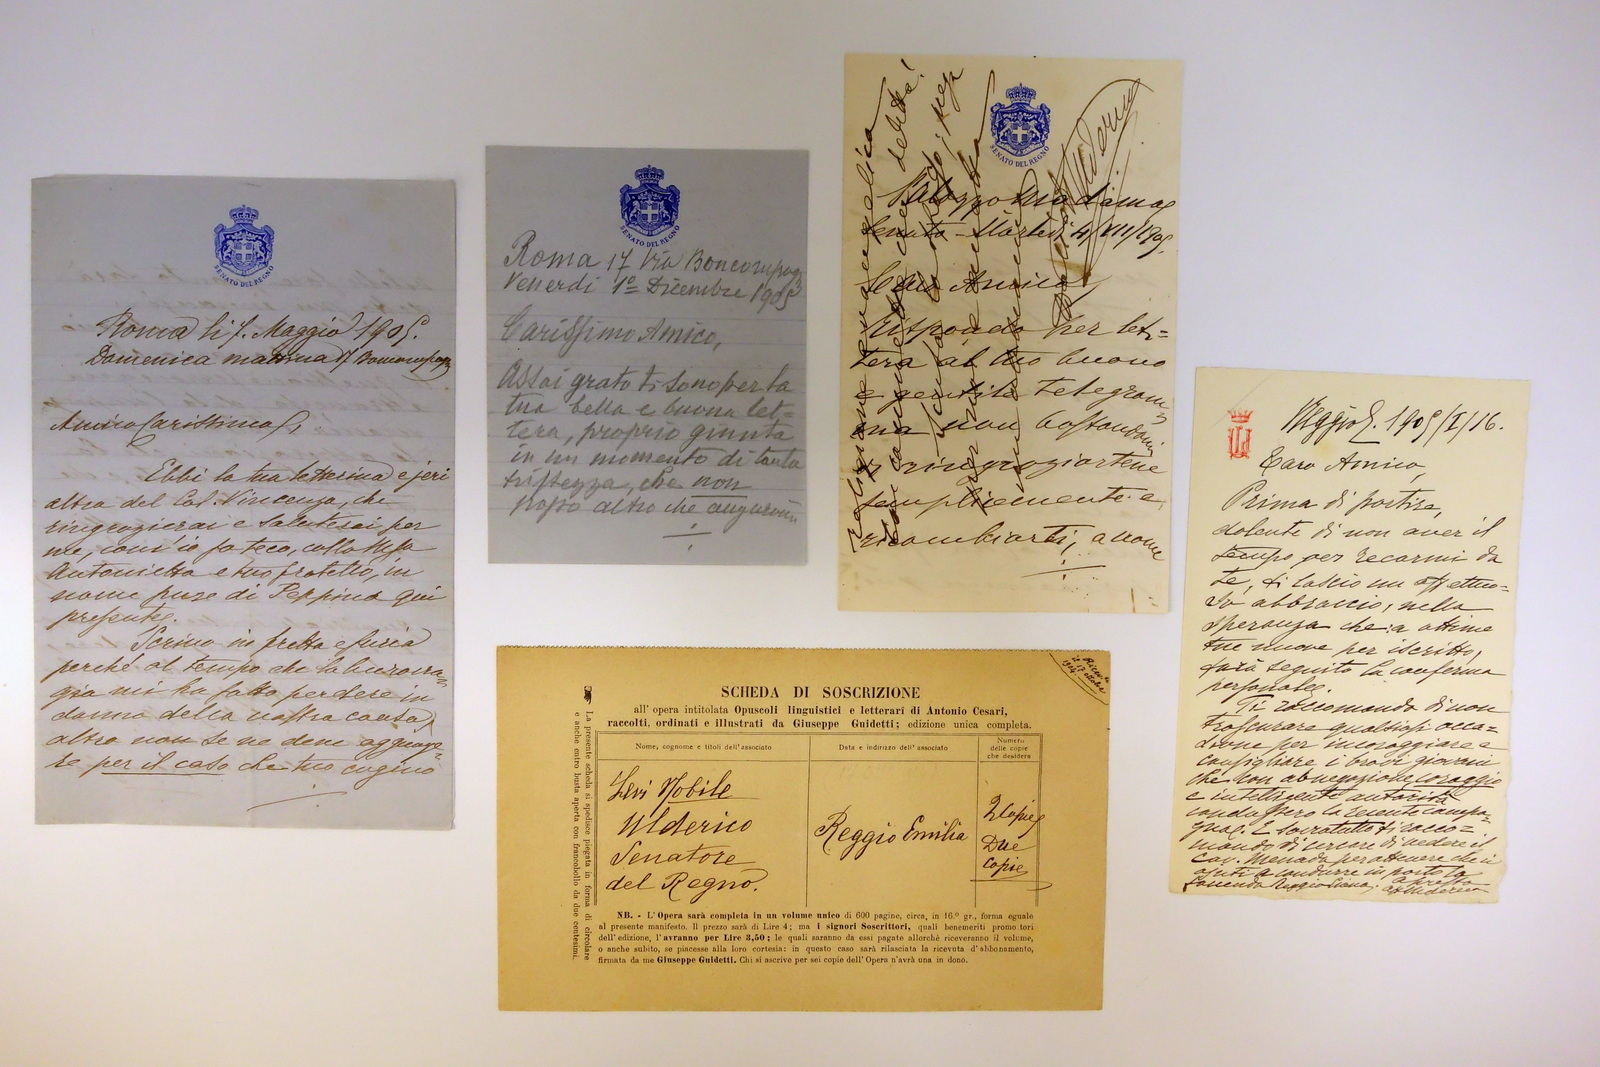 SENATO DEL REGNO
Roma li Maggio 1905.
Domenica mattina
Amico Carissimo,
Ebbi la tua letterina e jeri
altra del Cav. Vincenzo, che
ringrazierai e saluterai per
me, com'io fo teco, colla
Antonietta e tuo fratello, in
nome pure di Peppina qui
presente.
Scrivo in fretta e furia
perché al tempo che la burocra-
zia mi ha fatto perdere in
danno della nostra causa,
altro non se ne deve
re per il caso che tuo cugino
SENATO DEL REGNO
Roma 17 Via Boncompagni
Venerdì 1º Dicembre 1905
Carissimo Amico,
Assai grato ti sono per la
tua bella e buona let-
tera, proprio giunta
in un momento di tanta
tristezza, che non
posso altro che
SENATO DEL REGNO
Palazzo Madama
Senato - Martedì
Caro Amico,
Rispondo per let-
tera al tuo buono
e gentile telegram-
ma non bastandomi
ringraziartene
semplicemente e
ricambiarti, a nome
Reggio E. 1905/I/16.
Caro Amico,
Prima di partire,
dolente di non aver il
tempo per recarmi da
te, ti lascio un affettuo-
so abbraccio, nella
speranza che a ottime
tue nuove per iscritto,
farà seguito la conferma
personale.
Ti raccomando di non
trascurare qualsiasi occa-
sione per incoraggiare e
consigliare i bravi giovani
che con abnegazione, coraggio
e intelligente autorità
condussero la recente campa-
gna. E soprattutto ti racco-
mando di cercare di vedere il
Cav. Menada per ottenere che
SCHEDA DI SOSCRIZIONE
all' opera intitolata Opuscoli linguistici e letterari di Antonio Cesari,
raccolti, ordinati e illustrati da Giuseppe Guidetti; edizione unica completa.
La presente scheda si spedisce piegata in forma di circolare
e anche entro busta aperta con francobollo da due centesimi.
Nome, cognome e titoli dell' associato
Data e indirizzo dell' associato
Numero
delle copie
che desidera
Levi Nobile
Ulderico
Senatore
del Regno.
Reggio Emilia
2 copie
Due
copie
NB. - L' Opera sarà completa in un volume unico di 600 pagine, circa, in 16.º gr., forma eguale
al presente manifesto. Il prezzo sarà di Lire 4; ma i signori Soscrittori, quali benemeriti promotori
dell' edizione, l' avranno per Lire 3,50; le quali saranno da essi pagate allorchè riceveranno il volume,
o anche subito, se piacesse alla loro cortesia: in questo caso sarà rilasciata la ricevuta d' abbonamento,
firmata da me Giuseppe Guidetti. Chi si ascrive per sei copie dell' Opera n'avrà una in dono.